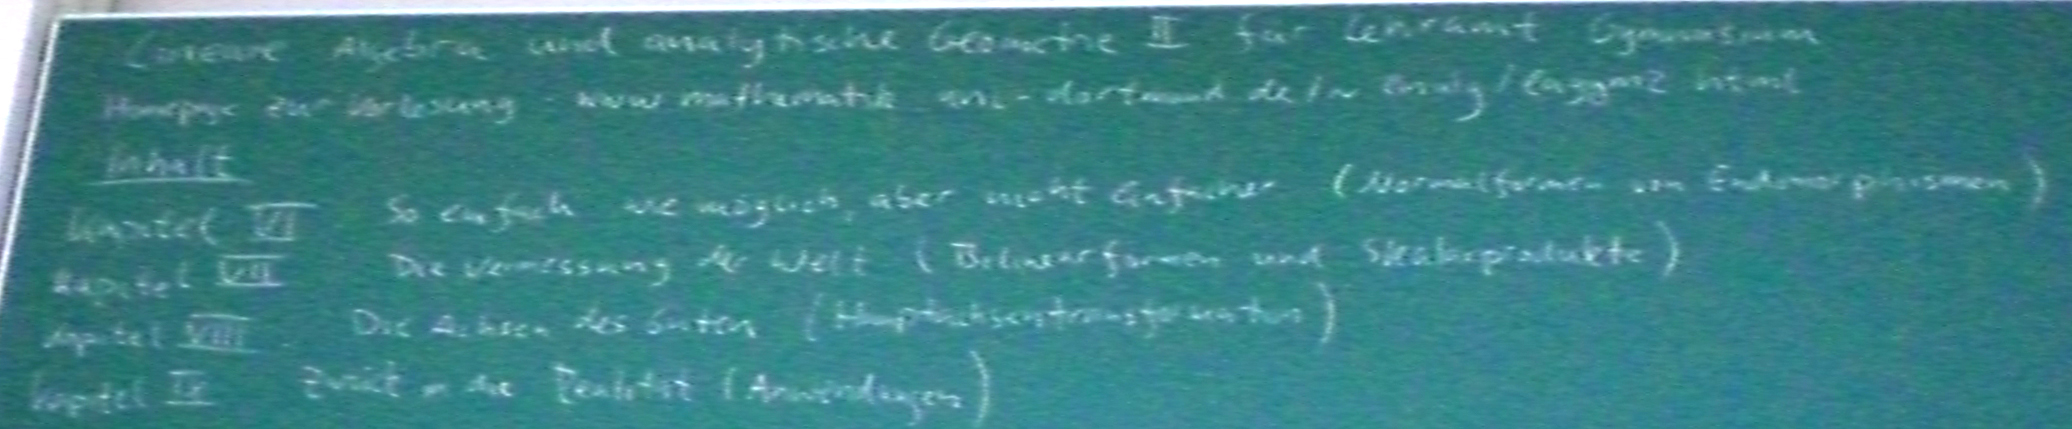 Lineare Algebra und analytische Geometrie II für Lehramt Gymnasium
Homepage zur Vorlesung www.mathematik.uni-dortmund.de/~
Inhalt
Kapitel VI So einfach wie möglich, aber nicht einfacher (Normalformen von Endomorphismen)
Kapitel VII Die Vermessung der Welt (Bilinearformen und Skalarprodukte)
Kapitel VIII Die Achsen des Guten (Hauptachsentransformation)
Kapitel IX Zurück in die Realität (Anwendungen)